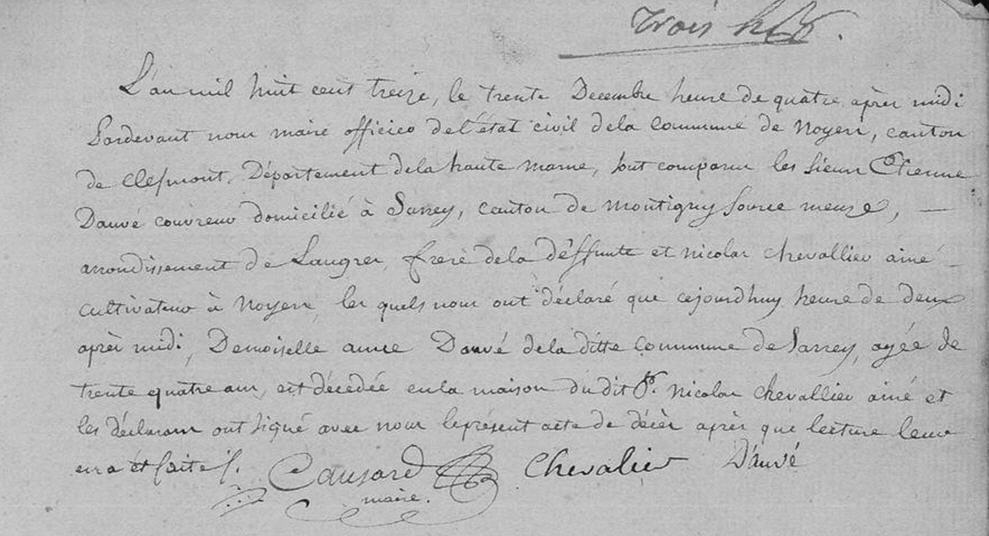 trois
L'an mil huit cent treize, le trente Decembre heure de quatre après midi
Pardevant nous maire officier de l'état civil dela Commune de Noyers, canton
de Clefmont, Département dela haute marne, sont comparus les sieurs Etienne
Dauvé couvreur domicilié à Sarrey, canton de montigny source meuse, —
arrondissement de Langres, frere dela déffunte et nicolas chevallier ainé —
cultivateur à Noyers, les quels nous ont déclaré que cejourdhuy heure de deux
après midi, Demoiselle anne Dauvé dela ditte Commune de Sarrey, agée de
trente quatre ans, est décédée en la maison du dit Sr. nicolas chevallier ainé et
les déclarans ont signé avec nous leprésent acte de décès après que lecture leur
en a été faite /.
Causard chevalier Dauvé
maire.